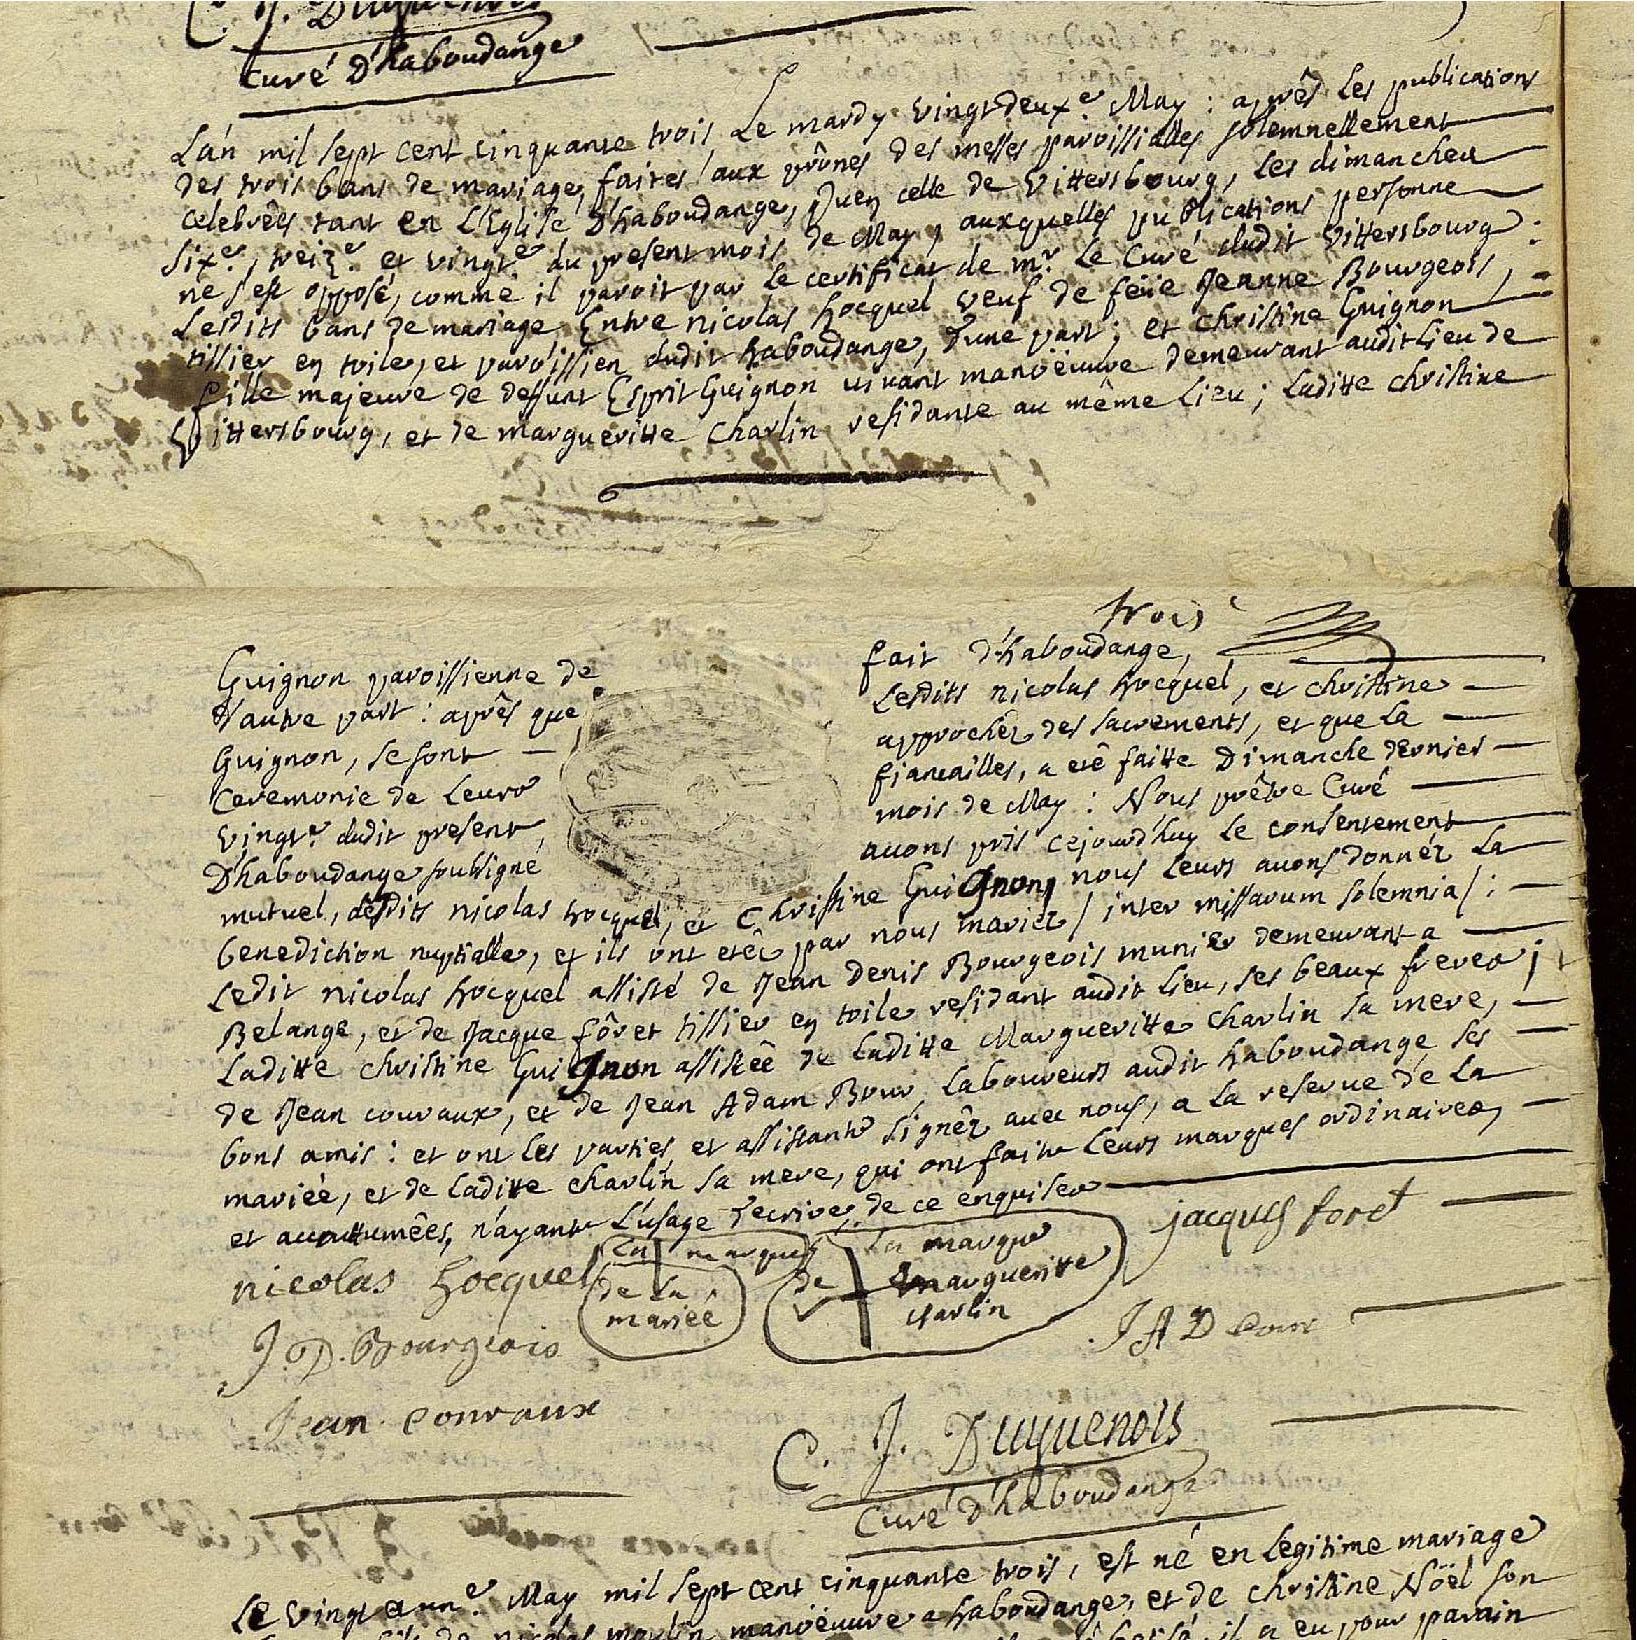 C. J. Duquenois
Curé D'haboudange
L'an mil sept cent cinquante trois Le mardy vingtdeuxe May : après Les publications
des trois bans de mariage, faites aux prônes des messes paroissialles solemnellement
celebrées tant en L'Eglise D'haboudange, qu'en celle de Vittersbourg, les dimanches
sixe, treize et vingte du present mois de May, auxquelles publications personne
ne s'est opposé, comme il paroit par le certificat de mr Le Curé dudit Vittersbourg :
Lesdits bans de mariage Entre nicolas hocquel veuf de feüe Jeanne Bourgeois,
tissier en toile, et paroissien dudit haboudange, d'une part ; et christine Guignon
fille majeure de deffunt Esprit Guignon vivant manoëuvre demeurant audit Lieu de
Vittersbourg, et de margueritte Charlin residante au même Lieu ; Laditte christine
trois
Guignon paroissienne de fait D'haboudange,
d'autre part : après que Lesdits nicolas hocquel, et christine
Guignon, se sont approchéz des sacrements, et que la
Ceremonie de Leurs fiancailles, a eté faitte Dimanche dernier
vingte dudit present mois de May : Nous prêtre Curé
D'haboudange soussigné avons pris cejourd'huy Le consentement
mutuel, desdits nicolas hocquel, et Christine Guignon, nous Leurs avons donnéz La
benediction nuptialle, et ils ont etéz par nous mariéz / inter missarum solemnia / :
Ledit nicolas hocquel assisté de Jean Denis Bourgeois munier demeurant a
Belange, et de Jacque fôret tissier en toile residant audit Lieu, ses beaux freres ;
Laditte christine Guignon assistée de Laditte Margueritte Charlin sa mere,
de Jean couraux, et de Jean Adam Bour, Laboureurs audit haboudange ses
bons amis : et ont Les parties et assistants signéz avec nous, a la reserve de La
mariée, et de laditte charlin sa mere, qui ont fait Leurs marques ordinaires,
et accouttumées, n'ayante L'usage d'ecrire, de ce enquises
nicolas hocquel La marque de La mariée La marque de margueritte charlin jacques foret
J. D. Bourgeois J A D bour
Jean Couraux
C. J. Duquenois
Curé D'haboudange
Le vingt et une May mil sept cent cinquante trois, est né en Legitime mariage
nicolas marlin manoëuvre a haboudange, et de christine Nöel son
il a eu pour parain